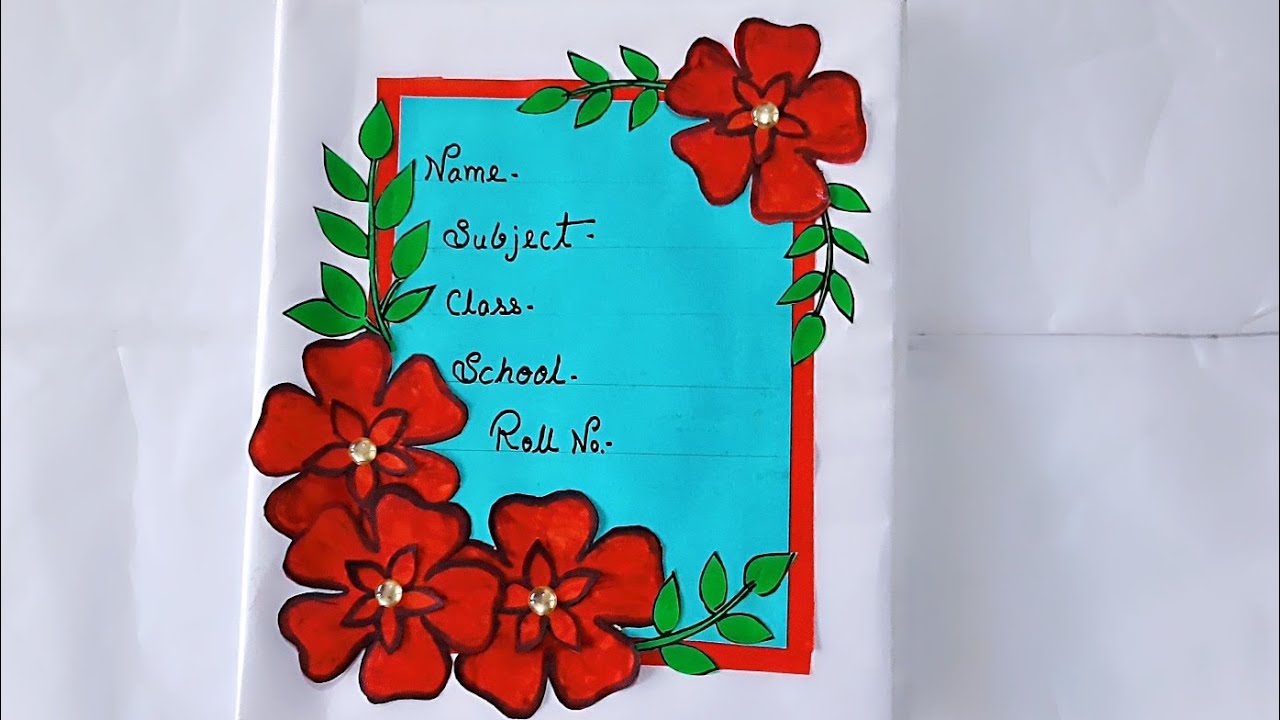 Name-
Subject-
Class-
School-
Roll No.-